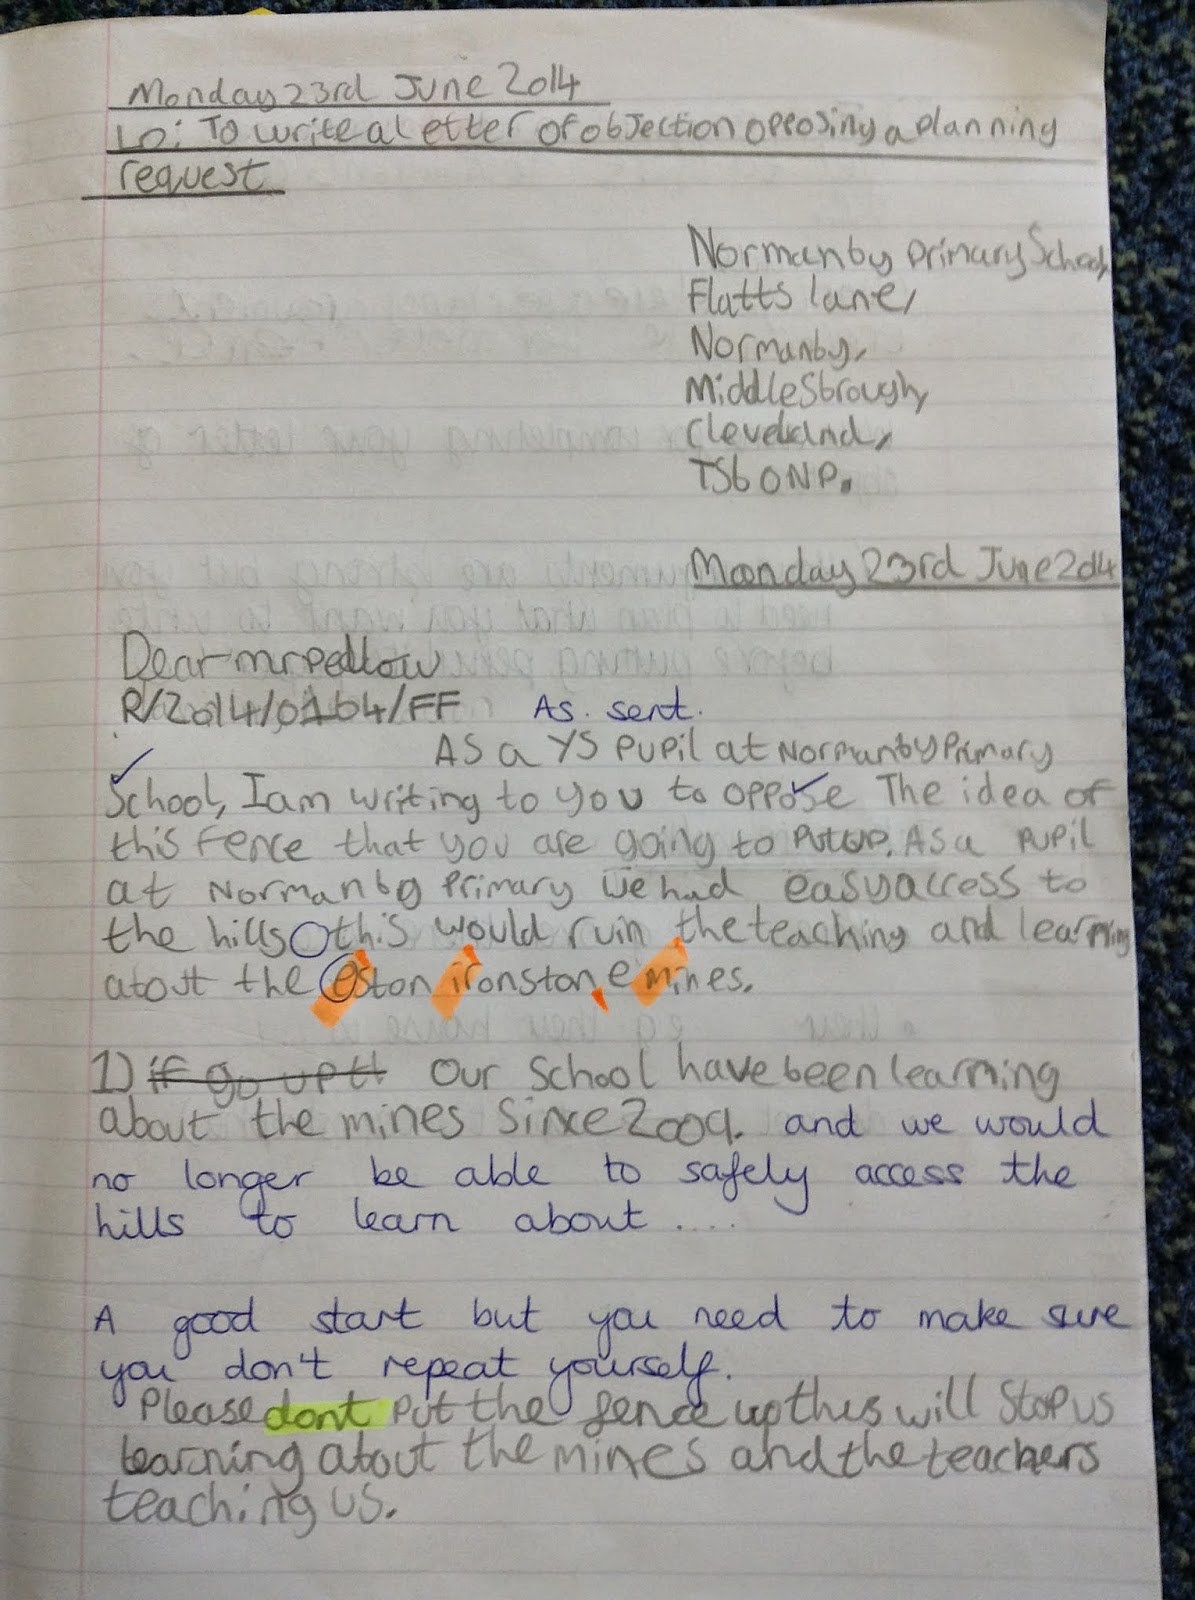 Monday 23rd June 2014
LO: To write a letter of objection opposing a planning
request
Normanby primary School,
Flatts lane,
Normanby,
Middlesbrough,
Cleveland,
TS6 0NP.
Monday 23rd June 2014
Dear mr Pedlow
R/2014/0164/FF As. sent.
AS a Y5 PUPIL at Normanby Primary
School, I am writing to you to oppose The idea of
this fence that you are going to Put up. As a pupil
at Normanby Primary we had easy access to
the hills this would ruin the teaching and learning
about the eston ironston,e mines.
1) if go up t Our School have been learning
about the mines Since 2009. and we would
no longer be able to safely access the
hills to learn about ....
A good start but you need to make sure
you don't repeat yourself.
Please dont put the fence up this will Stop us
learning about the mines and the teachers
teaching us.